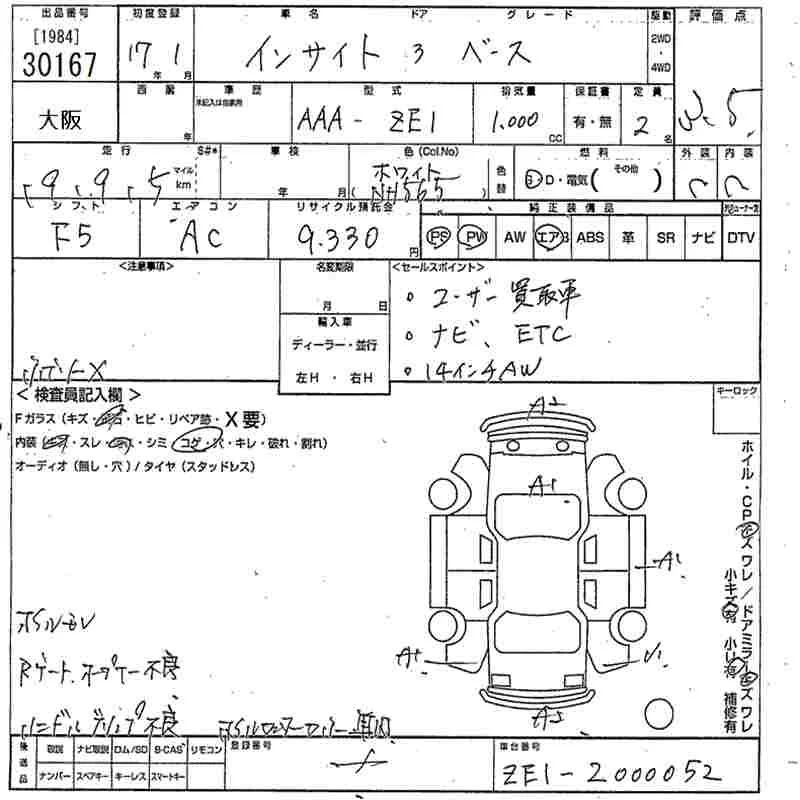 出品番号 初度登録 車名 ドア グレード 駆動 評価点
[1984]
30167 17年 1月 インサイト 3 ベース 2WD・4WD
3.5
車歴 型式 排気量 保証書 定員
未記入は自家用
大阪 年 AAA-ZE1 1,000cc 有・無 2名
走行 S#* 車検 色(Col.No) 燃料 外装 内装
マイル km 年 月 ホワイト (NH565) 色替 D・電気 (その他) C C
シフト エアコン リサイクル預託金 純正装備品
F5 AC 9.330円 PS PW AW エアB ABS 革 SR ナビ DTV
<注意事項> 名変期限 <セールスポイント>
月 日
・ユーザー買取車
輸入車
ディーラー・並行
・ナビ、ETC
左H・右H
・14インチAW
<検査員記入欄> キーロック
Fガラス(キズ・・ヒビ・リペア跡・X要)
内装(・スレ・・シミ・コゲ・穴・キレ・破れ・割れ)
オーディオ(無し・穴)/タイヤ(スタッドレス)
A2
A1
A1
A1
A2
ホイル・CPキズワレ/ドアミラーキズワレ
小キズ有 小凹有 補修有
Rゲート、オープナー不良
後送品 取説 ナビ取説 ロム/SD B-CAS リモコン 登録番号 車台番号
ナンバー スペアキー キーレス スマートキー
ZE1-2000052